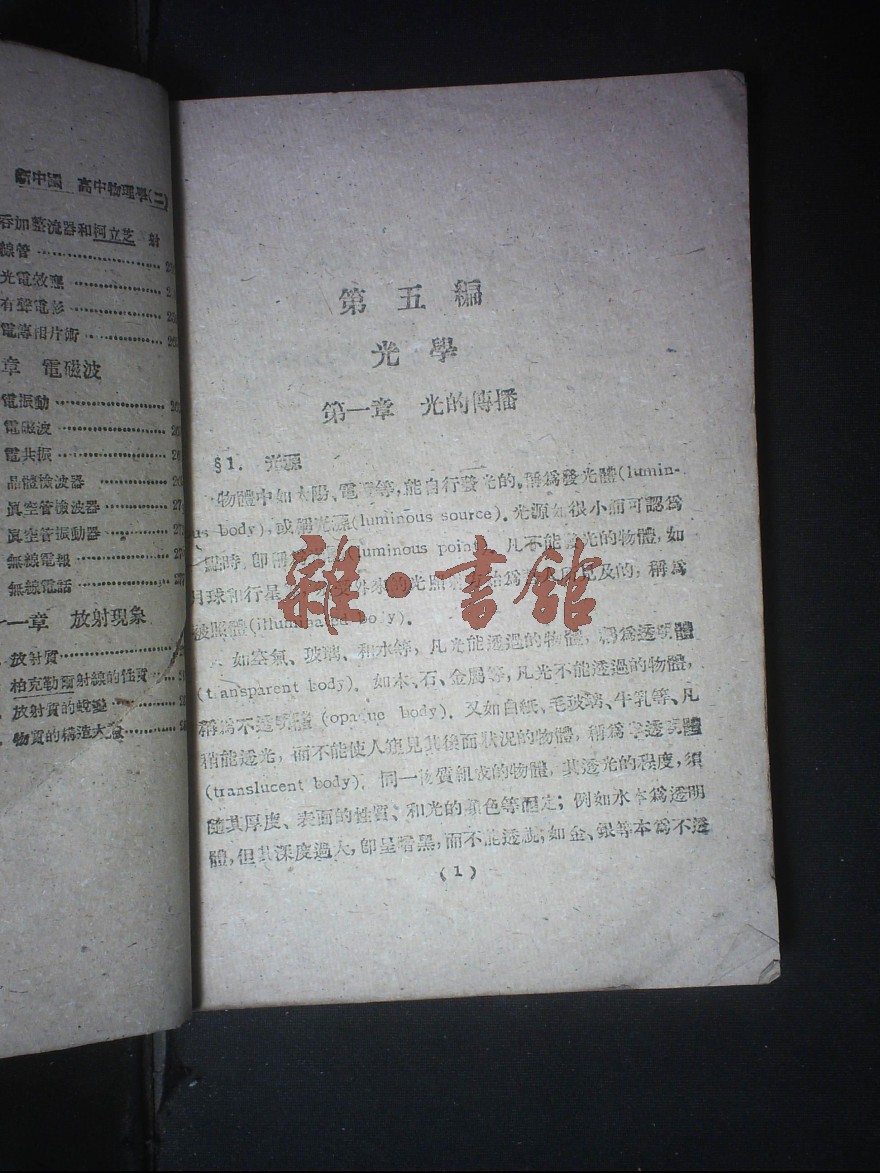 新中國 高中物理學(二)
吞加整流器和柯立芝 射
線管
光電效應
有聲電影
電傳相片術
章 電磁波
電振動
電磁波
電共振
晶體檢波器
眞空管檢波器
眞空管振動器
無線電報
無線電話
一章 放射現象
放射質
柏克勒爾射線的性質
放射質的蛻變
物質的構造大意
第五編
光學
第一章 光的傳播
§1. 光源
物體中如太陽、電等,能自行發光的,稱爲發光體(lumin-
us body),或稱光源(luminous source).光源如很小而可認爲
點時,卽稱 (luminous point). 凡不能發光的物體,如
月球和行星 外來的光照 始爲 所見及的,稱爲
被照體(illuminated body).
如空氣、玻璃、和水等,凡光能透過的物體,稱爲透明體
(transparent body). 如木、石、金屬等,凡光不能透過的物體,
稱爲不透明體 (opaque body). 又如白紙、毛玻璃、牛乳等、凡
稍能透光,而不能使人窺見其後面狀況的物體,稱爲半透明體
(translucent body). 同一物質組成的物體,其透光的程度,須
隨其厚度、表面的性質、和光的顏色等而定;例如水本爲透明
體,但其深度過大,卽呈暗黑,而不能透視;如金、銀等本爲不透
(1)
雜·書館